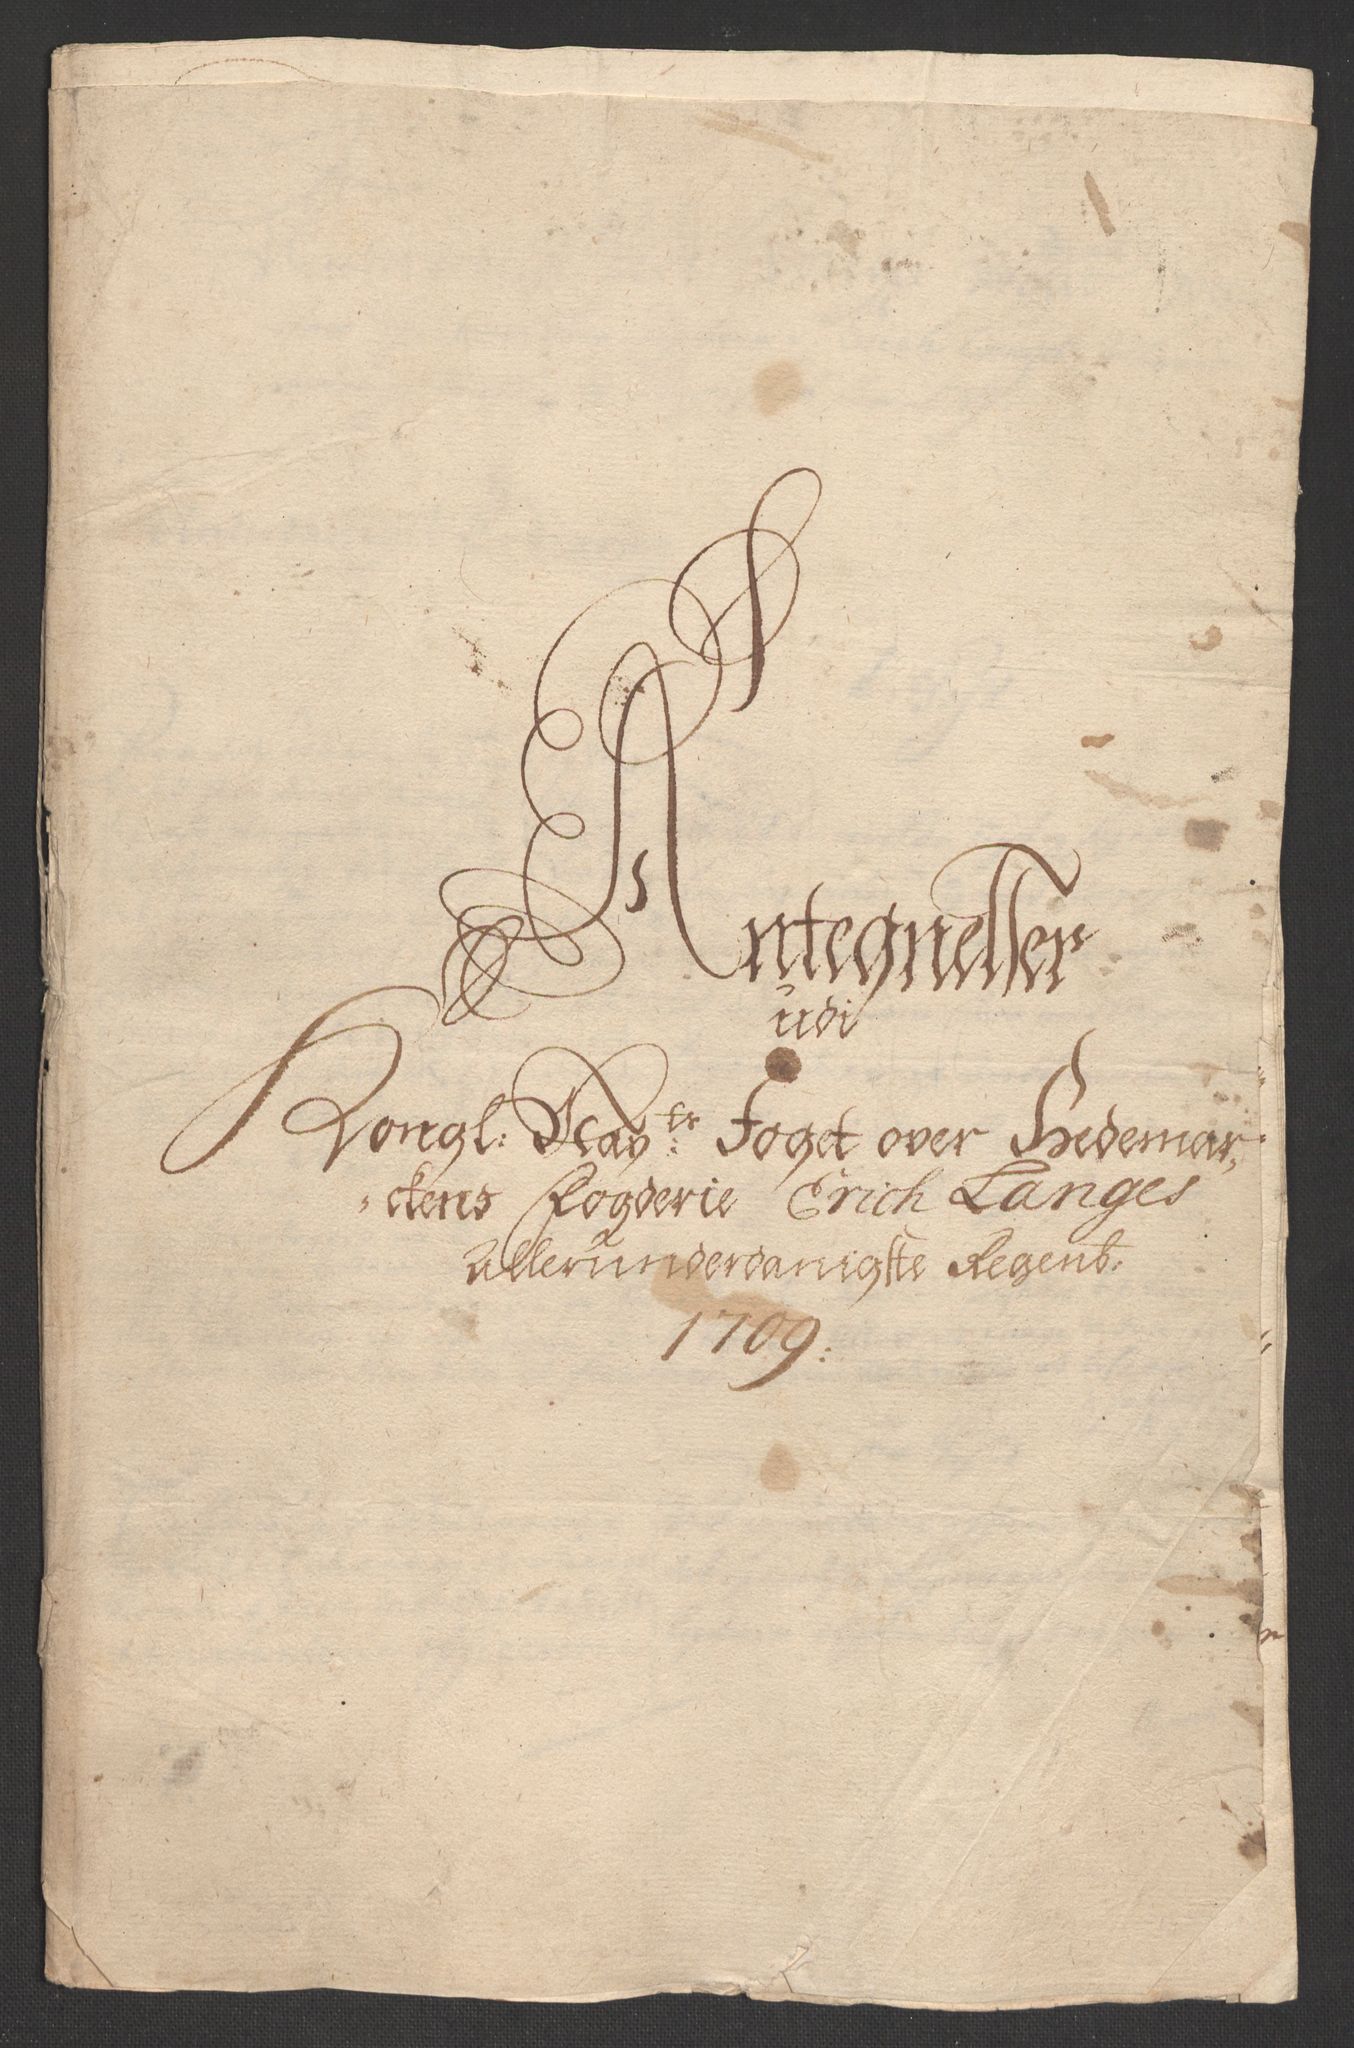 Antegnelser
udi
Kongl: May:ts Foget over Hedemar,
,,ckens Fogderie Erich Langes
Allerunderdanigste Regensb:
1709: